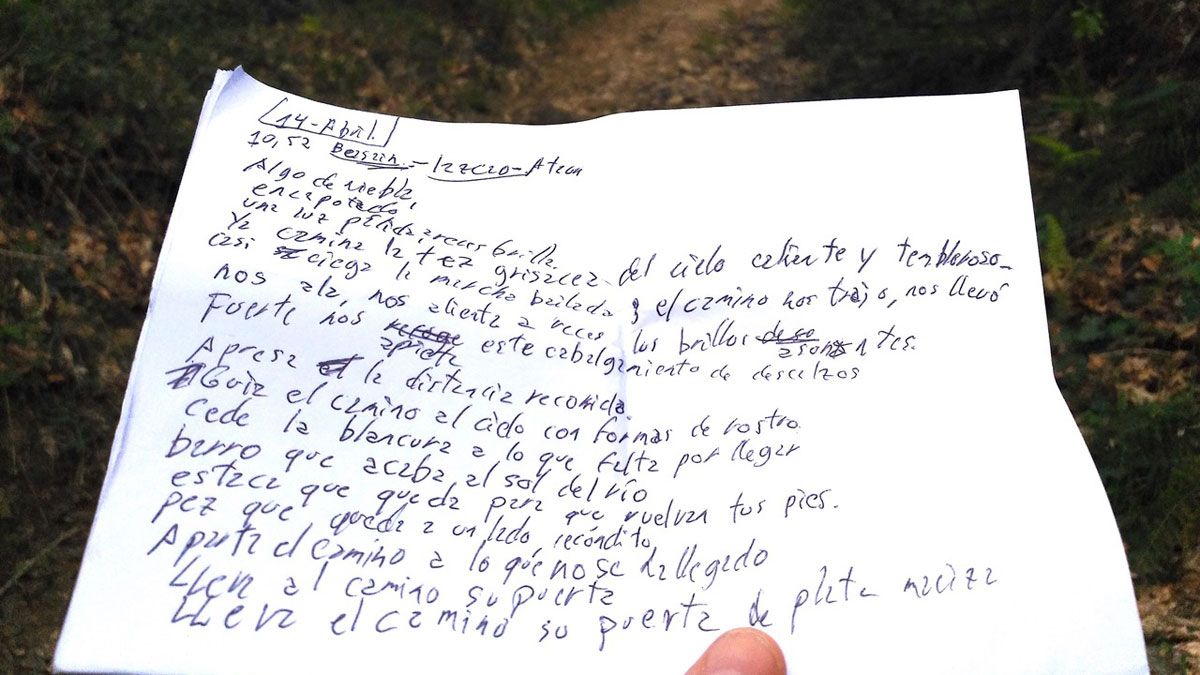 14-Abril.
10,52 Beizin.-Izczo-Atzan
Algo de niebla,
encapotado,
una luz pálida, a veces brilla.
Ya camina la tez grisácea del cielo caliente y tembloroso
casi ciega la marcha bailada y el camino nos trajo, nos llevó
nos ala, nos alienta a veces los brillos asonantes.
Fuerte nos aprieta este cabalgamiento de descalzos
Apresa la distancia recorrida.
Guia el camino al cielo con formas de rostro.
cede la blancura a lo que falta por llegar
barro que acaba al sol del río
estaca que queda para que vuelvan tus pies.
pez que queda a un lado, recóndito
Aparta el camino a lo que no se ha llegado
LLeva al camino su puerta
LLeva el camino su puerta de plata maciza